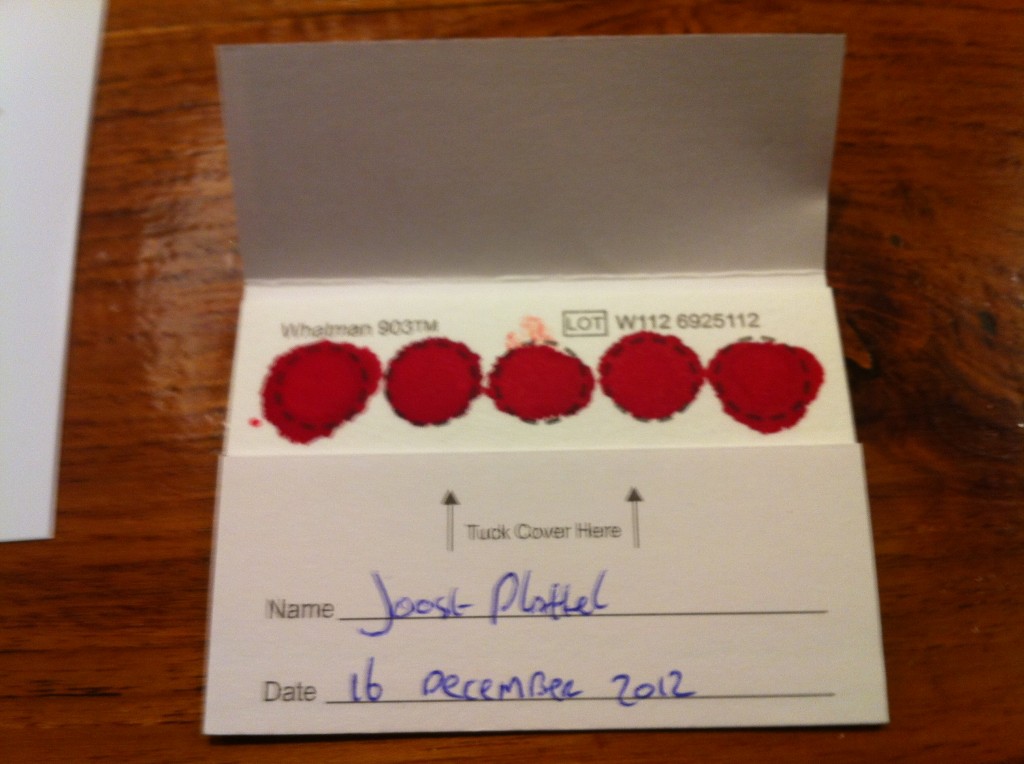 Whatman 903™ LOT W112 6925112
Tuck Cover Here
Name Joost Plattel
Date 16 December 2012